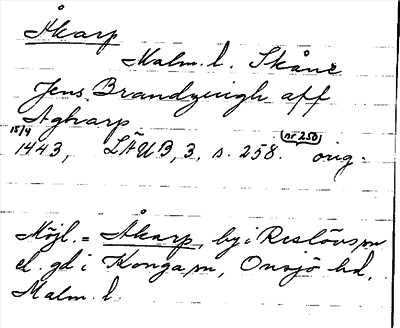 Åkarp
Malm. l. Skåne
Jens Brandzwigh aff
Agharp
15/4
1443, LÄUB, 3, s. 258. (nr 250) orig.
Möjl. = Åkarp, by i Reslövs sn
el. gd i Konga sn, Onsjö hd,
Malm. l.